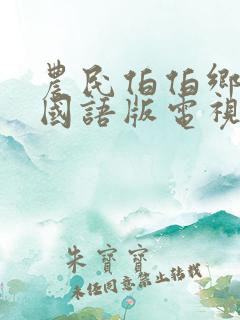 農民伯伯鄉
國語版電視
朱寶寶
未经同意禁止转载